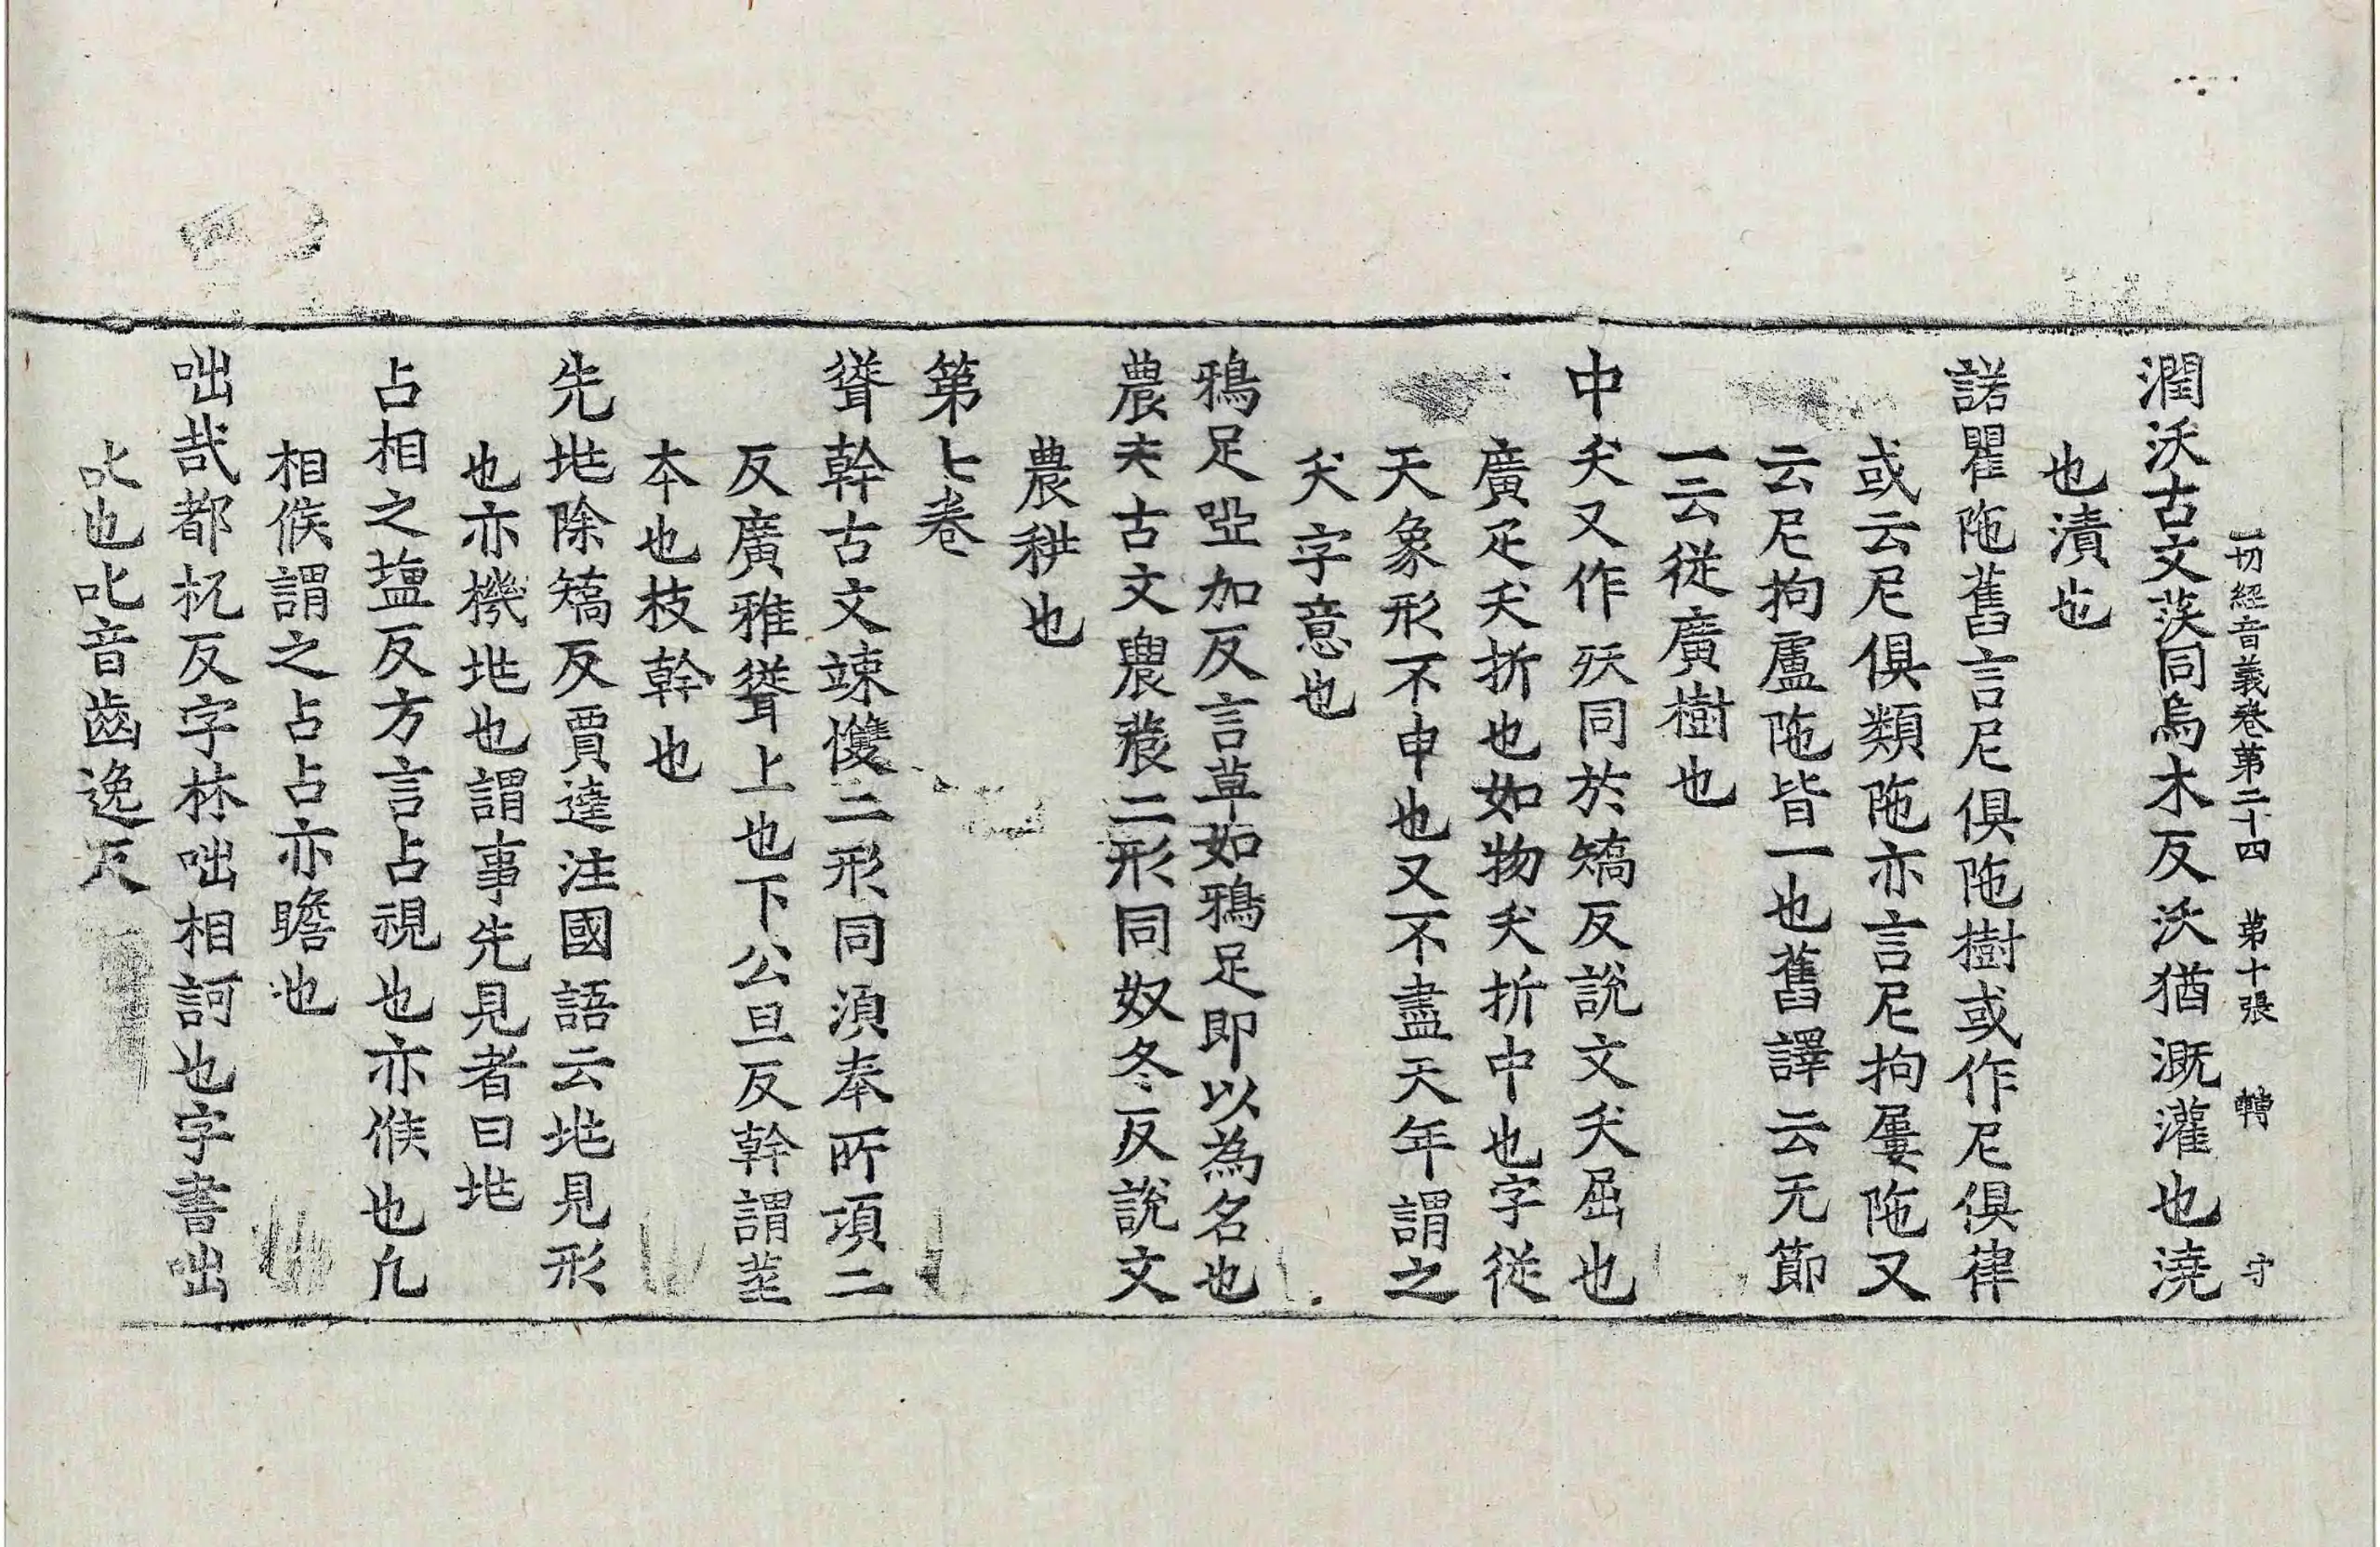 一切經音義卷第二十四 第十張 轉 守
潤沃古文䓇同烏木反沃猶溉灌也澆
也漬也
諾瞿陁舊言尼俱陁樹或作尼俱律
或云尼俱類陁亦言尼拘屢陁又
云尼拘盧陁皆一也舊譯云无節
一云從廣樹也
中夭又作殀同於矯反說文夭屈也
廣疋夭折也如物夭折中也字從
天象形不申也又不盡天年謂之
夭字意也
鵶足啞加反言草如鵶足即以為名也
農夫古文䢉辳二形同奴冬反說文
農耕也
第七卷
聳幹古文竦㩳二形同湏奉所項二
反廣雅聳上也下公旦反幹謂莖
本也枝幹也
先兆除矯反賈逵注國語云兆見形
也亦機兆也謂事先見者曰兆
占相之鹽反方言占視也亦候也凡
相候謂之占占亦瞻也
咄哉都杌反字林咄相訶也字書咄
叱也叱音齒逸反